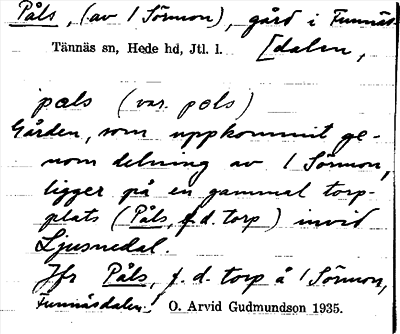 Påls, (av 1 Sörmon), gård i Funnäs-
Tännäs sn, Hede hd, Jtl. l. [dalen,
pals (var. pols)
Gården, som uppkommit ge-
nom delning av 1 Sörmon,
ligger på en gammal torp-
plats (Påls, f.d. torp) invid
Ljusnedal.
Jfr Påls, f.d. torp å 1 Sörmon,
Funnäsdalen!
O. Arvid Gudmundson 1935.